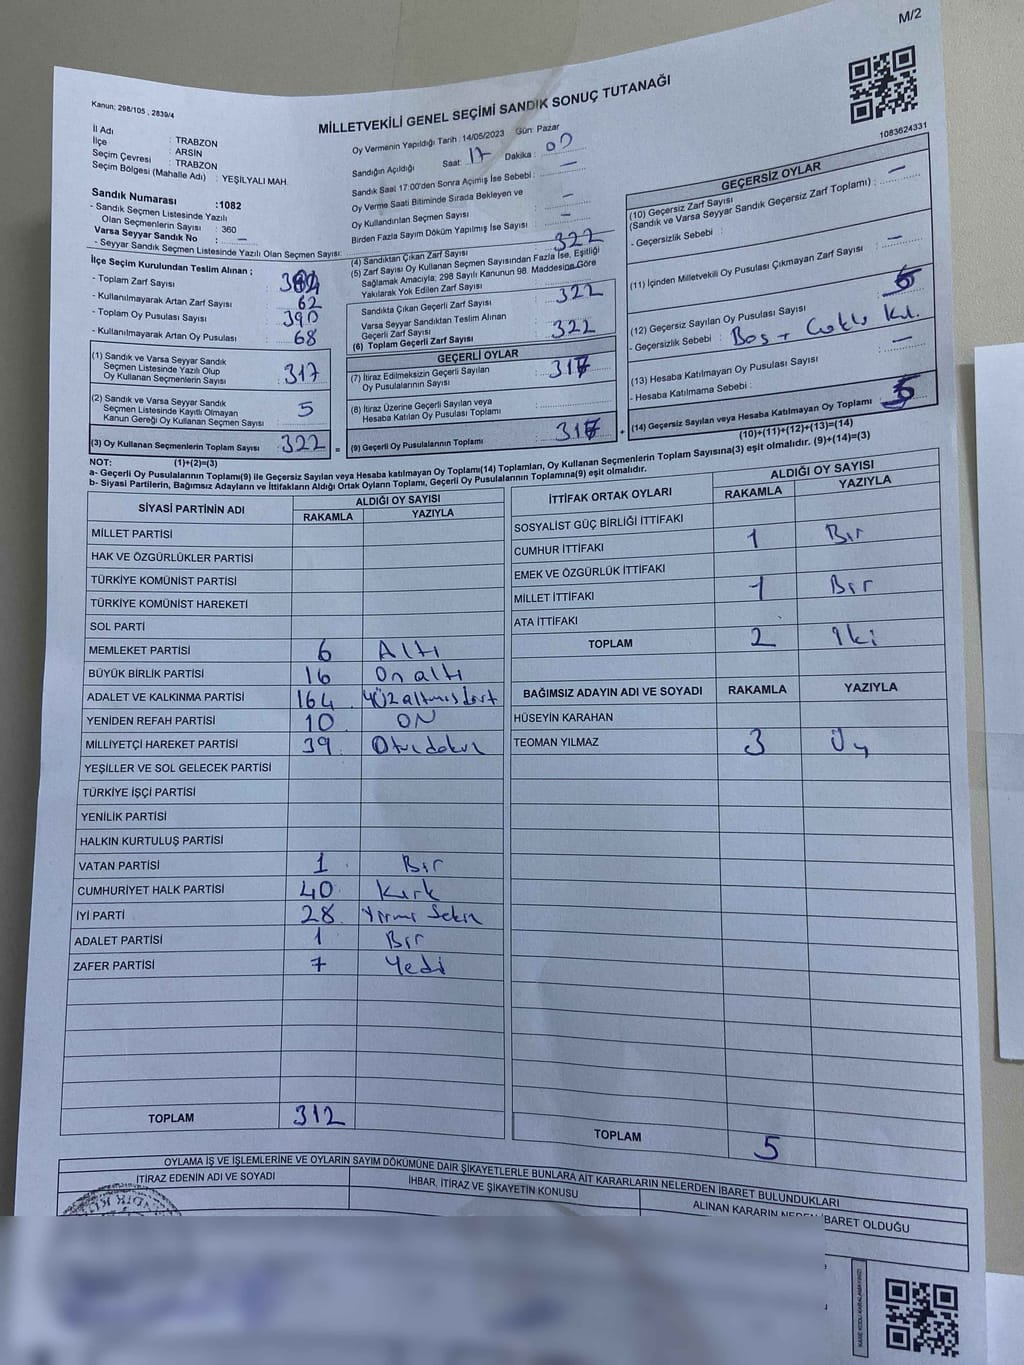 M/2
Kanun; 298/105 , 2839/4
MİLLETVEKİLİ GENEL SEÇİMİ SANDIK SONUÇ TUTANAĞI
1083624331
İl Adı : TRABZON
İlçe : ARSİN
Seçim Çevresi : TRABZON
Seçim Bölgesi (Mahalle Adı) : YEŞİLYALI MAH.
Sandık Numarası :1082
- Sandık Seçmen Listesinde Yazılı
Olan Seçmenlerin Sayısı : 360
Varsa Seyyar Sandık No : –
- Seyyar Sandık Seçmen Listesinde Yazılı Olan Seçmen Sayısı:
İlçe Seçim Kurulundan Teslim Alınan ;
- Toplam Zarf Sayısı :
- Kullanılmayarak Artan Zarf Sayısı : 62
- Toplam Oy Pusulası Sayısı : 390
- Kullanılmayarak Artan Oy Pusulası : 68
(1) Sandık ve Varsa Seyyar Sandık
Seçmen Listesinde Yazılı Olup
Oy Kullanan Seçmenlerin Sayısı : 317
(2) Sandık ve Varsa Seyyar Sandık
Seçmen Listesinde Kayıtlı Olmayan
Kanun Gereği Oy Kullanan Seçmen Sayısı : 5
(3) Oy Kullanan Seçmenlerin Toplam Sayısı : 322 =
Oy Vermenin Yapıldığı Tarih : 14/05/2023 Gün: Pazar
Sandığın Açıldığı Saat: 17 Dakika : 00
Sandık Saat 17:00'den Sonra Açımış İse Sebebi : –
Oy Verme Saati Bitiminde Sırada Bekleyen ve
Oy Kullandırılan Seçmen Sayısı : –
Birden Fazla Sayım Döküm Yapılmış İse Sayısı : –
(4) Sandıktan Çıkan Zarf Sayısı : 322
(5) Zarf Sayısı Oy Kullanan Seçmen Sayısından Fazla İse, Eşitliği
Sağlamak Amacıyla; 298 Sayılı Kanunun 98. Maddesine Göre
Yakılarak Yok Edilen Zarf Sayısı : –
Sandıkta Çıkan Geçerli Zarf Sayısı : 322
Varsa Seyyar Sandıktan Teslim Alınan
Geçerli Zarf Sayısı :
(6) Toplam Geçerli Zarf Sayısı : 322
GEÇERLİ OYLAR
(7) İtiraz Edilmeksizin Geçerli Sayılan
Oy Pusulalarının Sayısı : 317
(8) İtiraz Üzerine Geçerli Sayılan veya
Hesaba Katılan Oy Pusulası Toplamı :
(9) Geçerli Oy Pusulalarının Toplamı : 317 +
GEÇERSİZ OYLAR
(10) Geçersiz Zarf Sayısı
(Sandık ve Varsa Seyyar Sandık Geçersiz Zarf Toplamı) : –
- Geçersizlik Sebebi :
(11) İçinden Milletvekili Oy Pusulası Çıkmayan Zarf Sayısı –
(12) Geçersiz Sayılan Oy Pusulası Sayısı :
- Geçersizlik Sebebi : Boş +
(13) Hesaba Katılmayan Oy Pusulası Sayısı : –
- Hesaba Katılmama Sebebi :
(14) Geçersiz Sayılan veya Hesaba Katılmayan Oy Toplamı : 5
(10)+(11)+(12)+(13)=(14)
NOT: (1)+(2)=(3)
a- Geçerli Oy Pusulalarının Toplamı(9) ile Geçersiz Sayılan veya Hesaba katılmayan Oy Toplamı(14) Toplamları, Oy Kullanan Seçmenlerin Toplam Sayısına(3) eşit olmalıdır. (9)+(14)=(3)
b- Siyasi Partilerin, Bağımsız Adayların ve İttifakların Aldığı Ortak Oyların Toplamı, Geçerli Oy Pusulalarının Toplamına(9) eşit olmalıdır.
SİYASİ PARTİNİN ADI ALDIĞI OY SAYISI
RAKAMLA YAZIYLA
MİLLET PARTİSİ
HAK VE ÖZGÜRLÜKLER PARTİSİ
TÜRKİYE KOMÜNİST PARTİSİ
TÜRKİYE KOMÜNİST HAREKETİ
SOL PARTİ
MEMLEKET PARTİSİ 6 Altı
BÜYÜK BİRLİK PARTİSİ 16 On altı
ADALET VE KALKINMA PARTİSİ 164 Yüzaltmışdört
YENİDEN REFAH PARTİSİ 10 ON
MİLLİYETÇİ HAREKET PARTİSİ 39 Otuzdokuz
YEŞİLLER VE SOL GELECEK PARTİSİ
TÜRKİYE İŞÇİ PARTİSİ
YENİLİK PARTİSİ
HALKIN KURTULUŞ PARTİSİ
VATAN PARTİSİ 1 Bir
CUMHURİYET HALK PARTİSİ 40 Kırk
İYİ PARTİ 28 Yirmi Sekiz
ADALET PARTİSİ 1 Bir
ZAFER PARTİSİ 7 Yedi
TOPLAM 312
İTTİFAK ORTAK OYLARI ALDIĞI OY SAYISI
RAKAMLA YAZIYLA
SOSYALİST GÜÇ BİRLİĞİ İTTİFAKI
CUMHUR İTTİFAKI 1 Bir
EMEK VE ÖZGÜRLÜK İTTİFAKI
MİLLET İTTİFAKI 1 Bir
ATA İTTİFAKI
TOPLAM 2 İki
BAĞIMSIZ ADAYIN ADI VE SOYADI RAKAMLA YAZIYLA
HÜSEYİN KARAHAN
TEOMAN YILMAZ 3 Üç
TOPLAM 5
OYLAMA İŞ VE İŞLEMLERİNE VE OYLARIN SAYIM DÖKÜMÜNE DAİR ŞİKAYETLERLE BUNLARA AİT KARARLARIN NELERDEN İBARET BULUNDUKLARI
İTİRAZ EDENİN ADI VE SOYADI İHBAR, İTİRAZ VE ŞİKAYETİN KONUSU ALINAN KARARIN NEDEN İBARET OLDUĞU